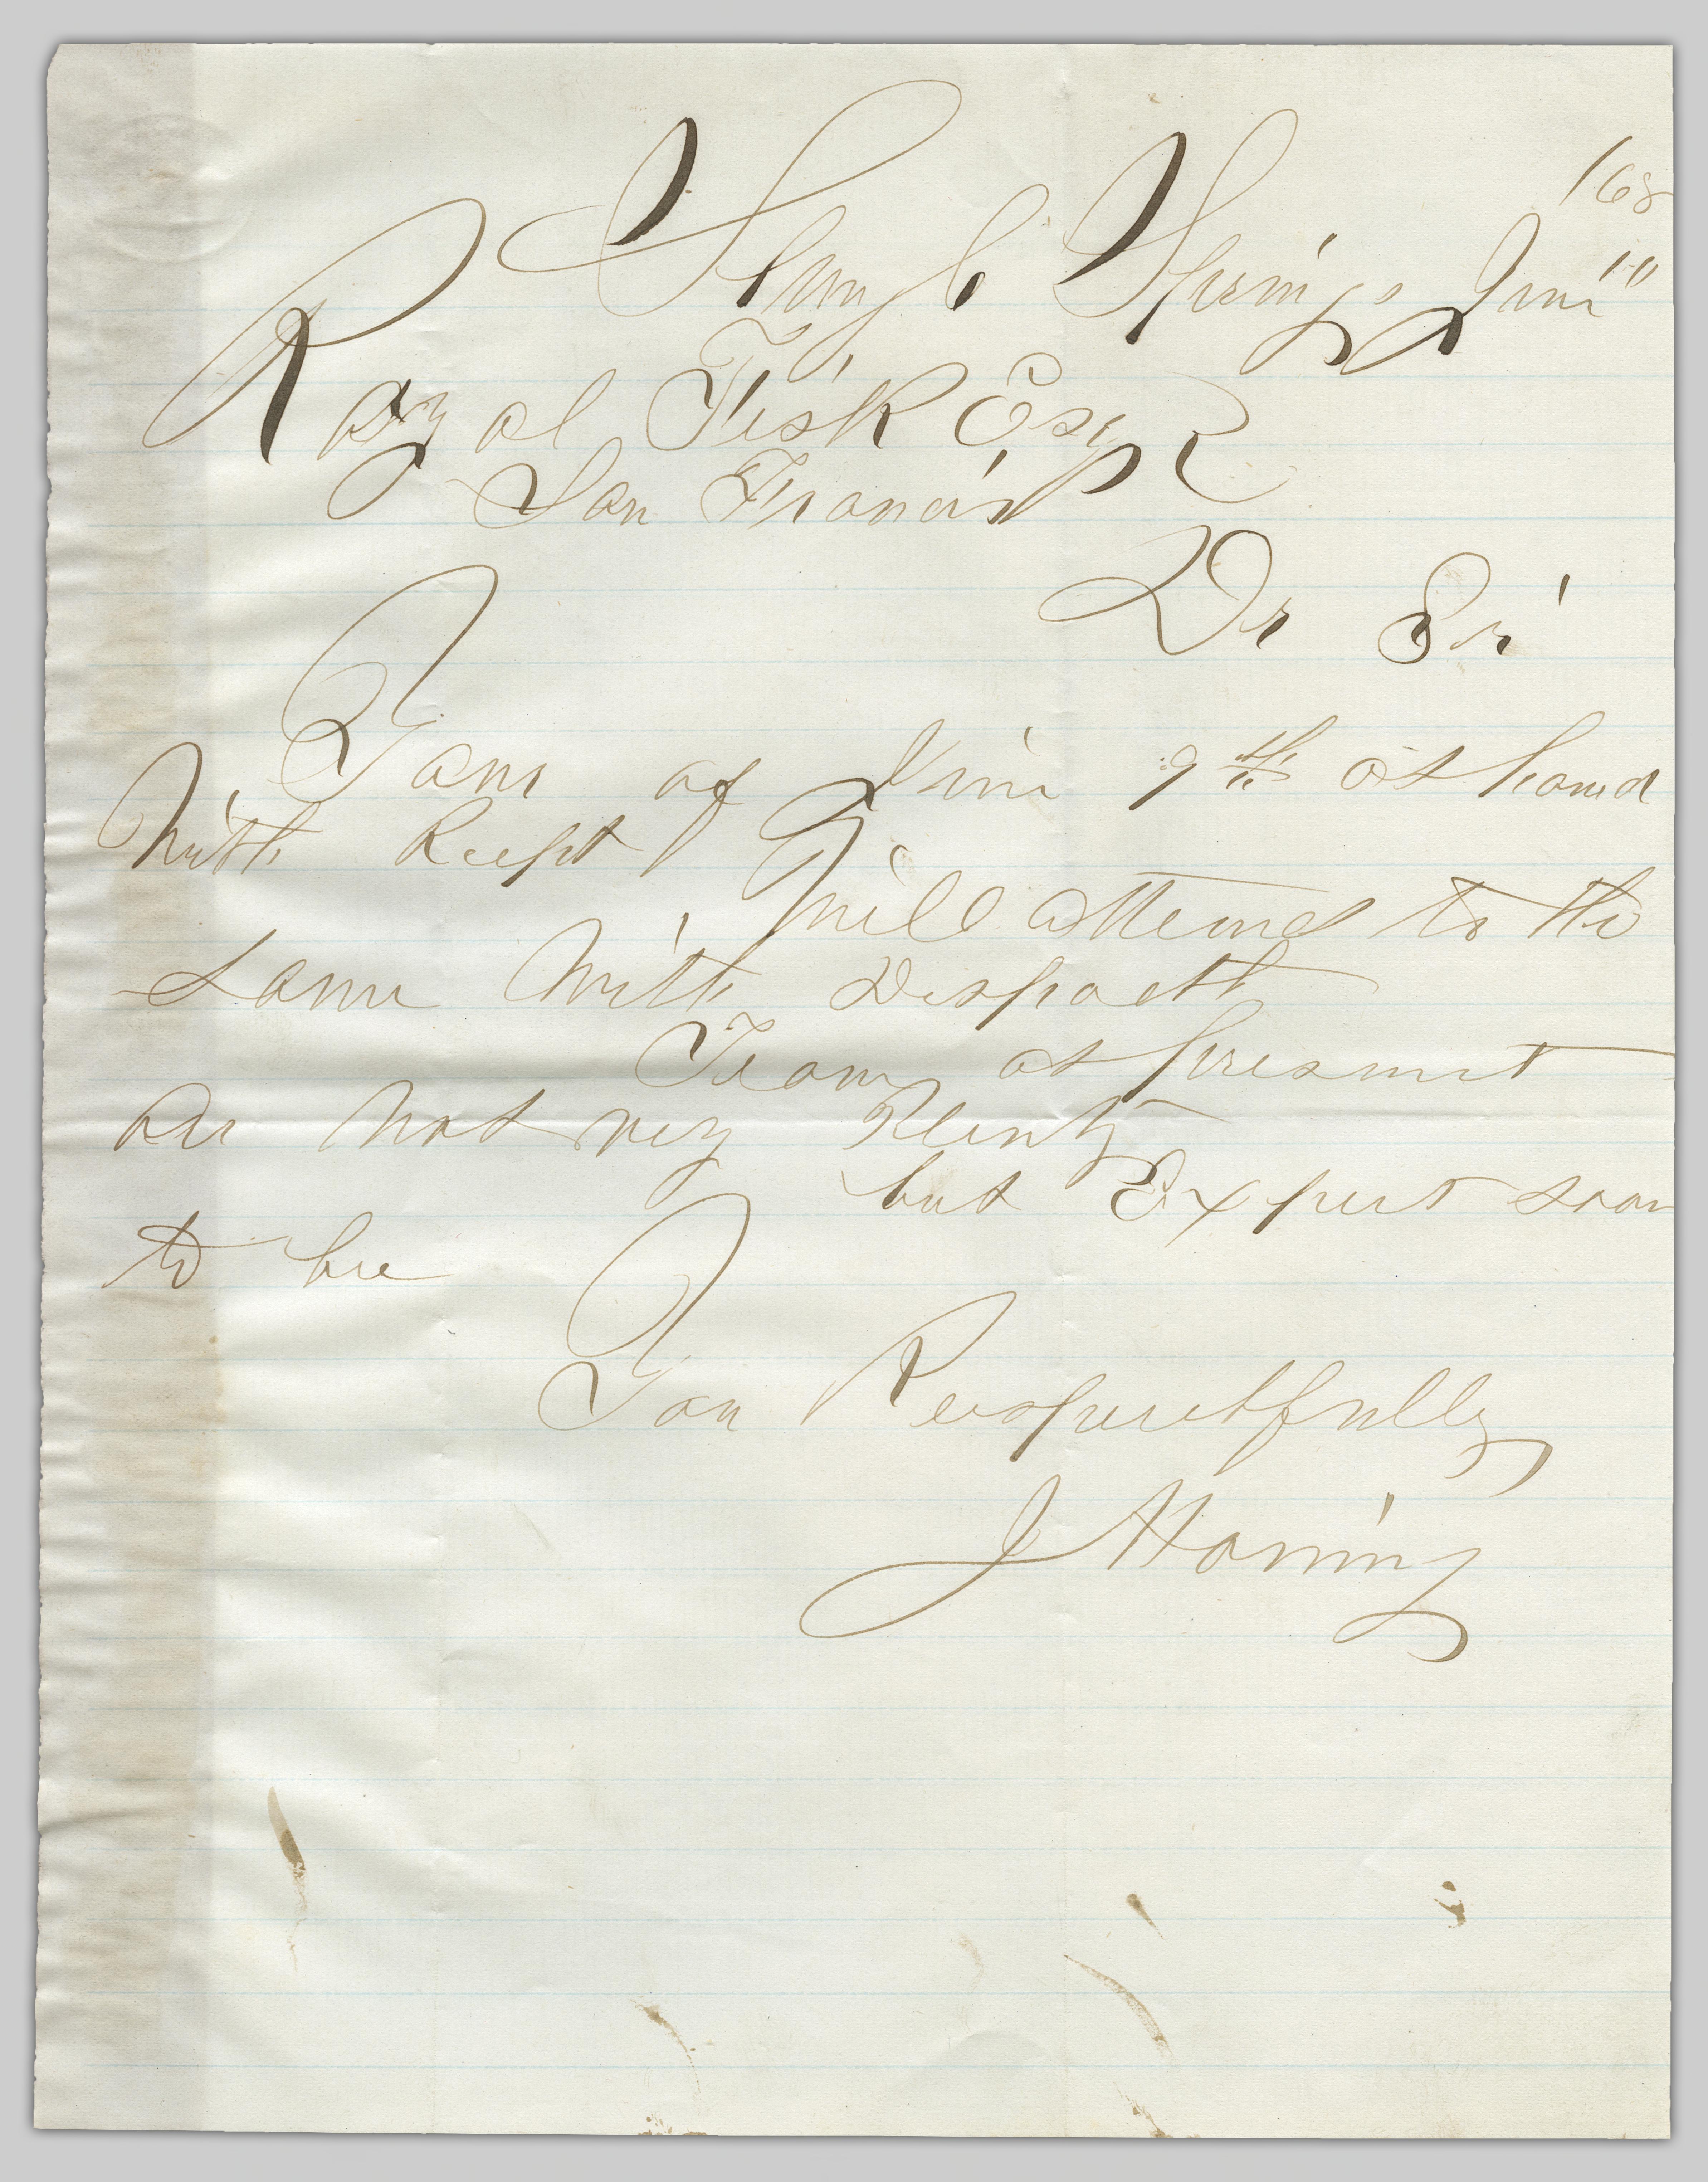 /68
Springs June 11"
Royal Fisk Esqr
San Francis
Dr Sir
Yours of June 9th at hand
With Recpt
I will attend to the
same With Dispatch
Teams at present
are not very Plenty
but Expect soon
to be
Your Respectfully
J Haring